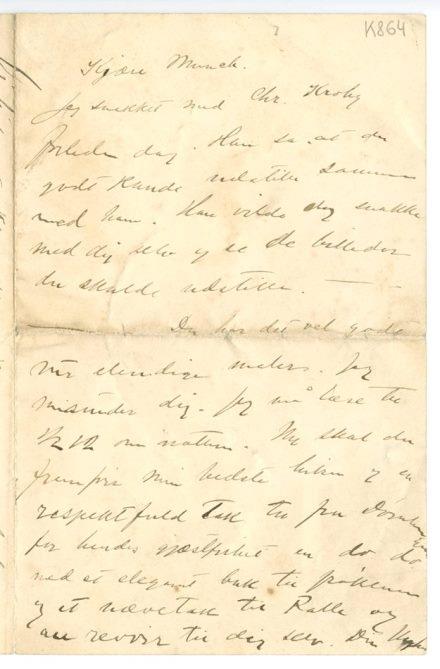 K864
Kjære Munch.
Jeg snakket med Chr. Krohg
forleden dag. Han sa at du
godt kunde udstille sammen
med ham. Han vilde dog snakke
med dig selv og se de billeder
du skulde udstille. —
Du har det vel godt
dig. Jeg må læse til
1/2 12 om natten. Nu skal du
frembære min bedste hilsen og en
respektfuld Tak til fru
for hendes gjæstfrihed en do do
med et elegant buk til frøkenen
og et nævetak til Kalle og
au revoir til dig selv. Din